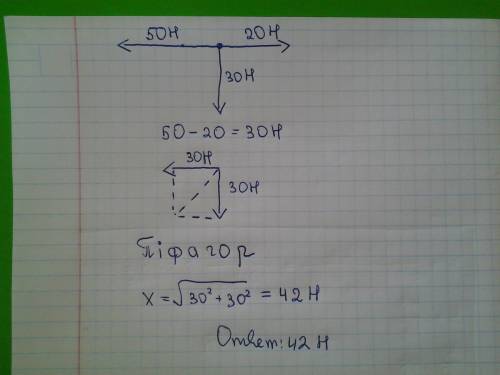 50H 20H
30H
50-20=30H
30H
30H
Піфагор
X=√30²+30² = 42H
Ответ: 42H